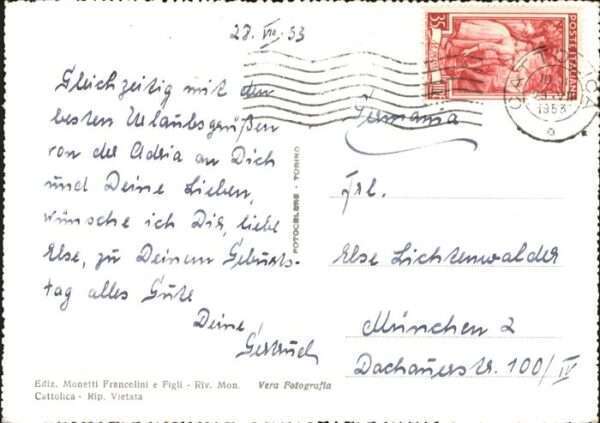 28. VII. 53
Gleichzeitig mit den
besten Urlaubsgrüßen
von der Adria an Dich
und Deine Lieben,
wünsche ich Dir, liebe
Else, zu Deinem Geburts-
tag alles Gute
Deine
Gertrud
Ediz. Monetti Francelini e Figli - Riv. Mon.
Cattolica - Rip. Vietata
Vera Fotografia
FOTOCELERE - TORINO
35
POSTE ITALIANE
CATTOLICA
1953
Germania
Frl.
Else Lichtenwalder
München 2
Dachauerstr. 100/IV